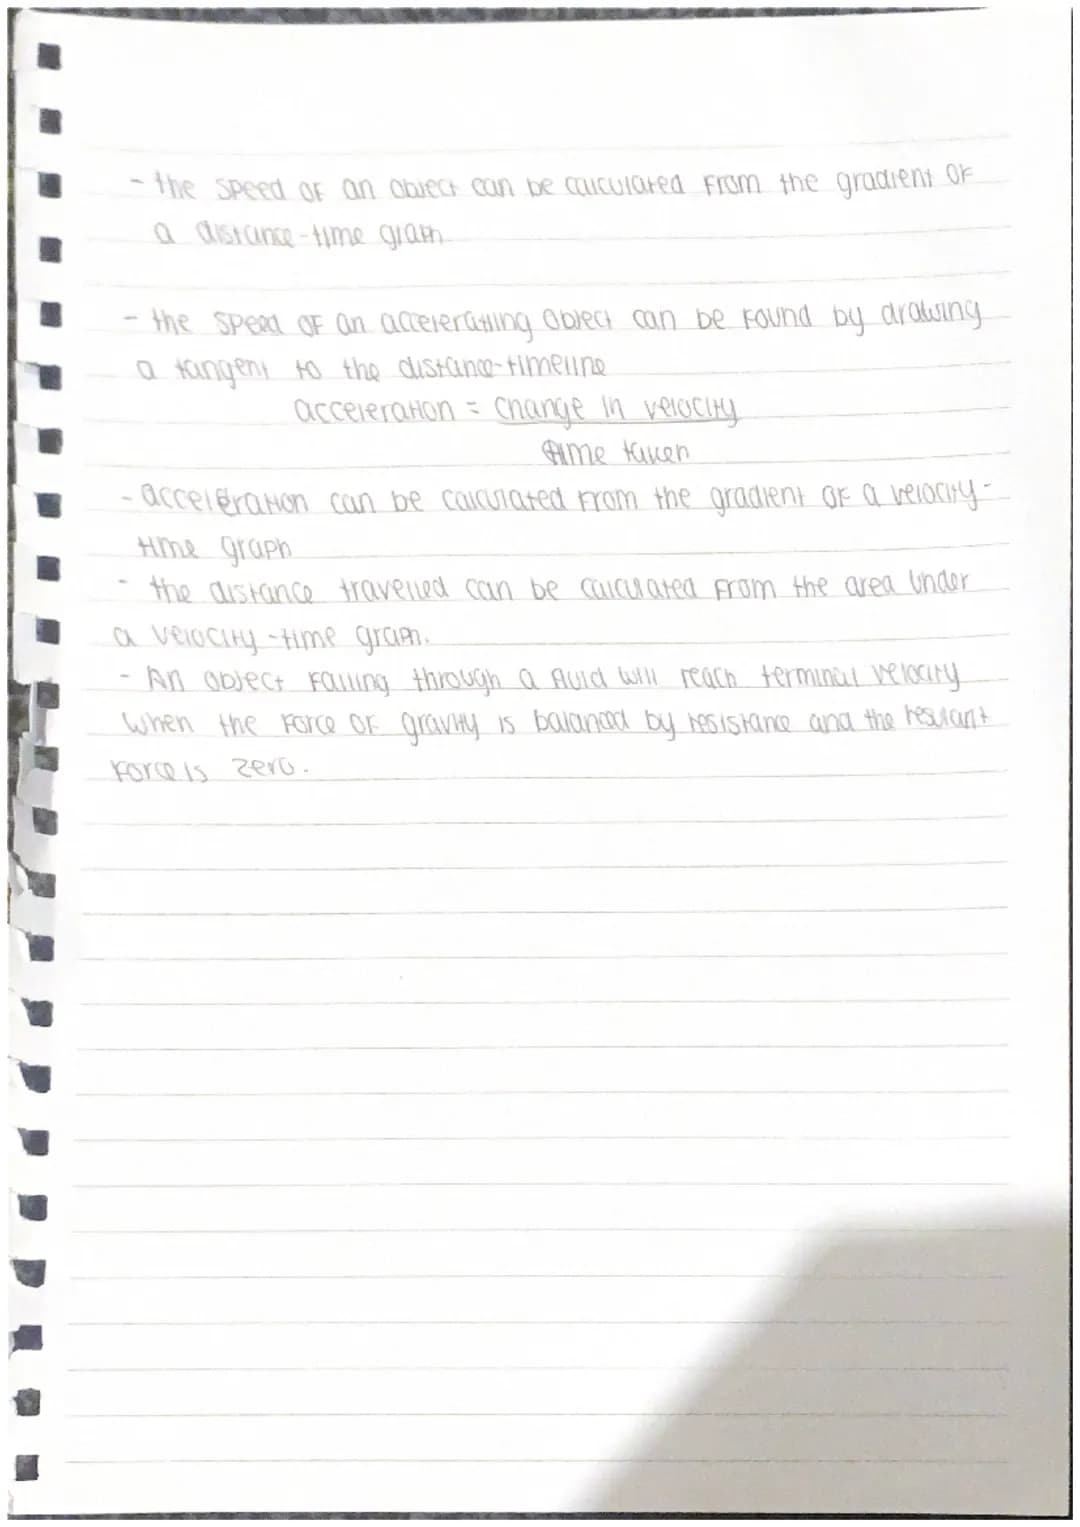 - the speed of an object can be calculated from the gradient of
a distance-time graph
- the speed of an accelerating object can be found by drawing
a tangent to the distance-timeline
acceleration = change in velocity
time taken
- acceleration can be calculated from the gradient of a velocity-
time graph
- the distance travelled can be calculated from the area under
a velocity-time graph.
- An object falling through a fluid will reach terminal velocity
when the force of gravity is balanced by resistance and the resulant
force is zero.